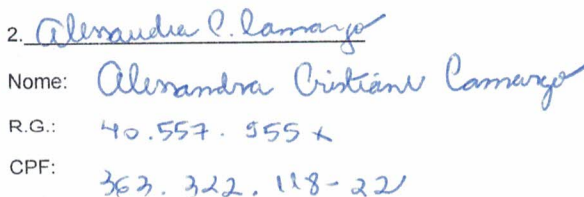 2. Alessandra C. Camargo
Nome: Alessandra Cristiane Camargo
R.G.: 40.557.955 x
CPF: 363.322.118-22